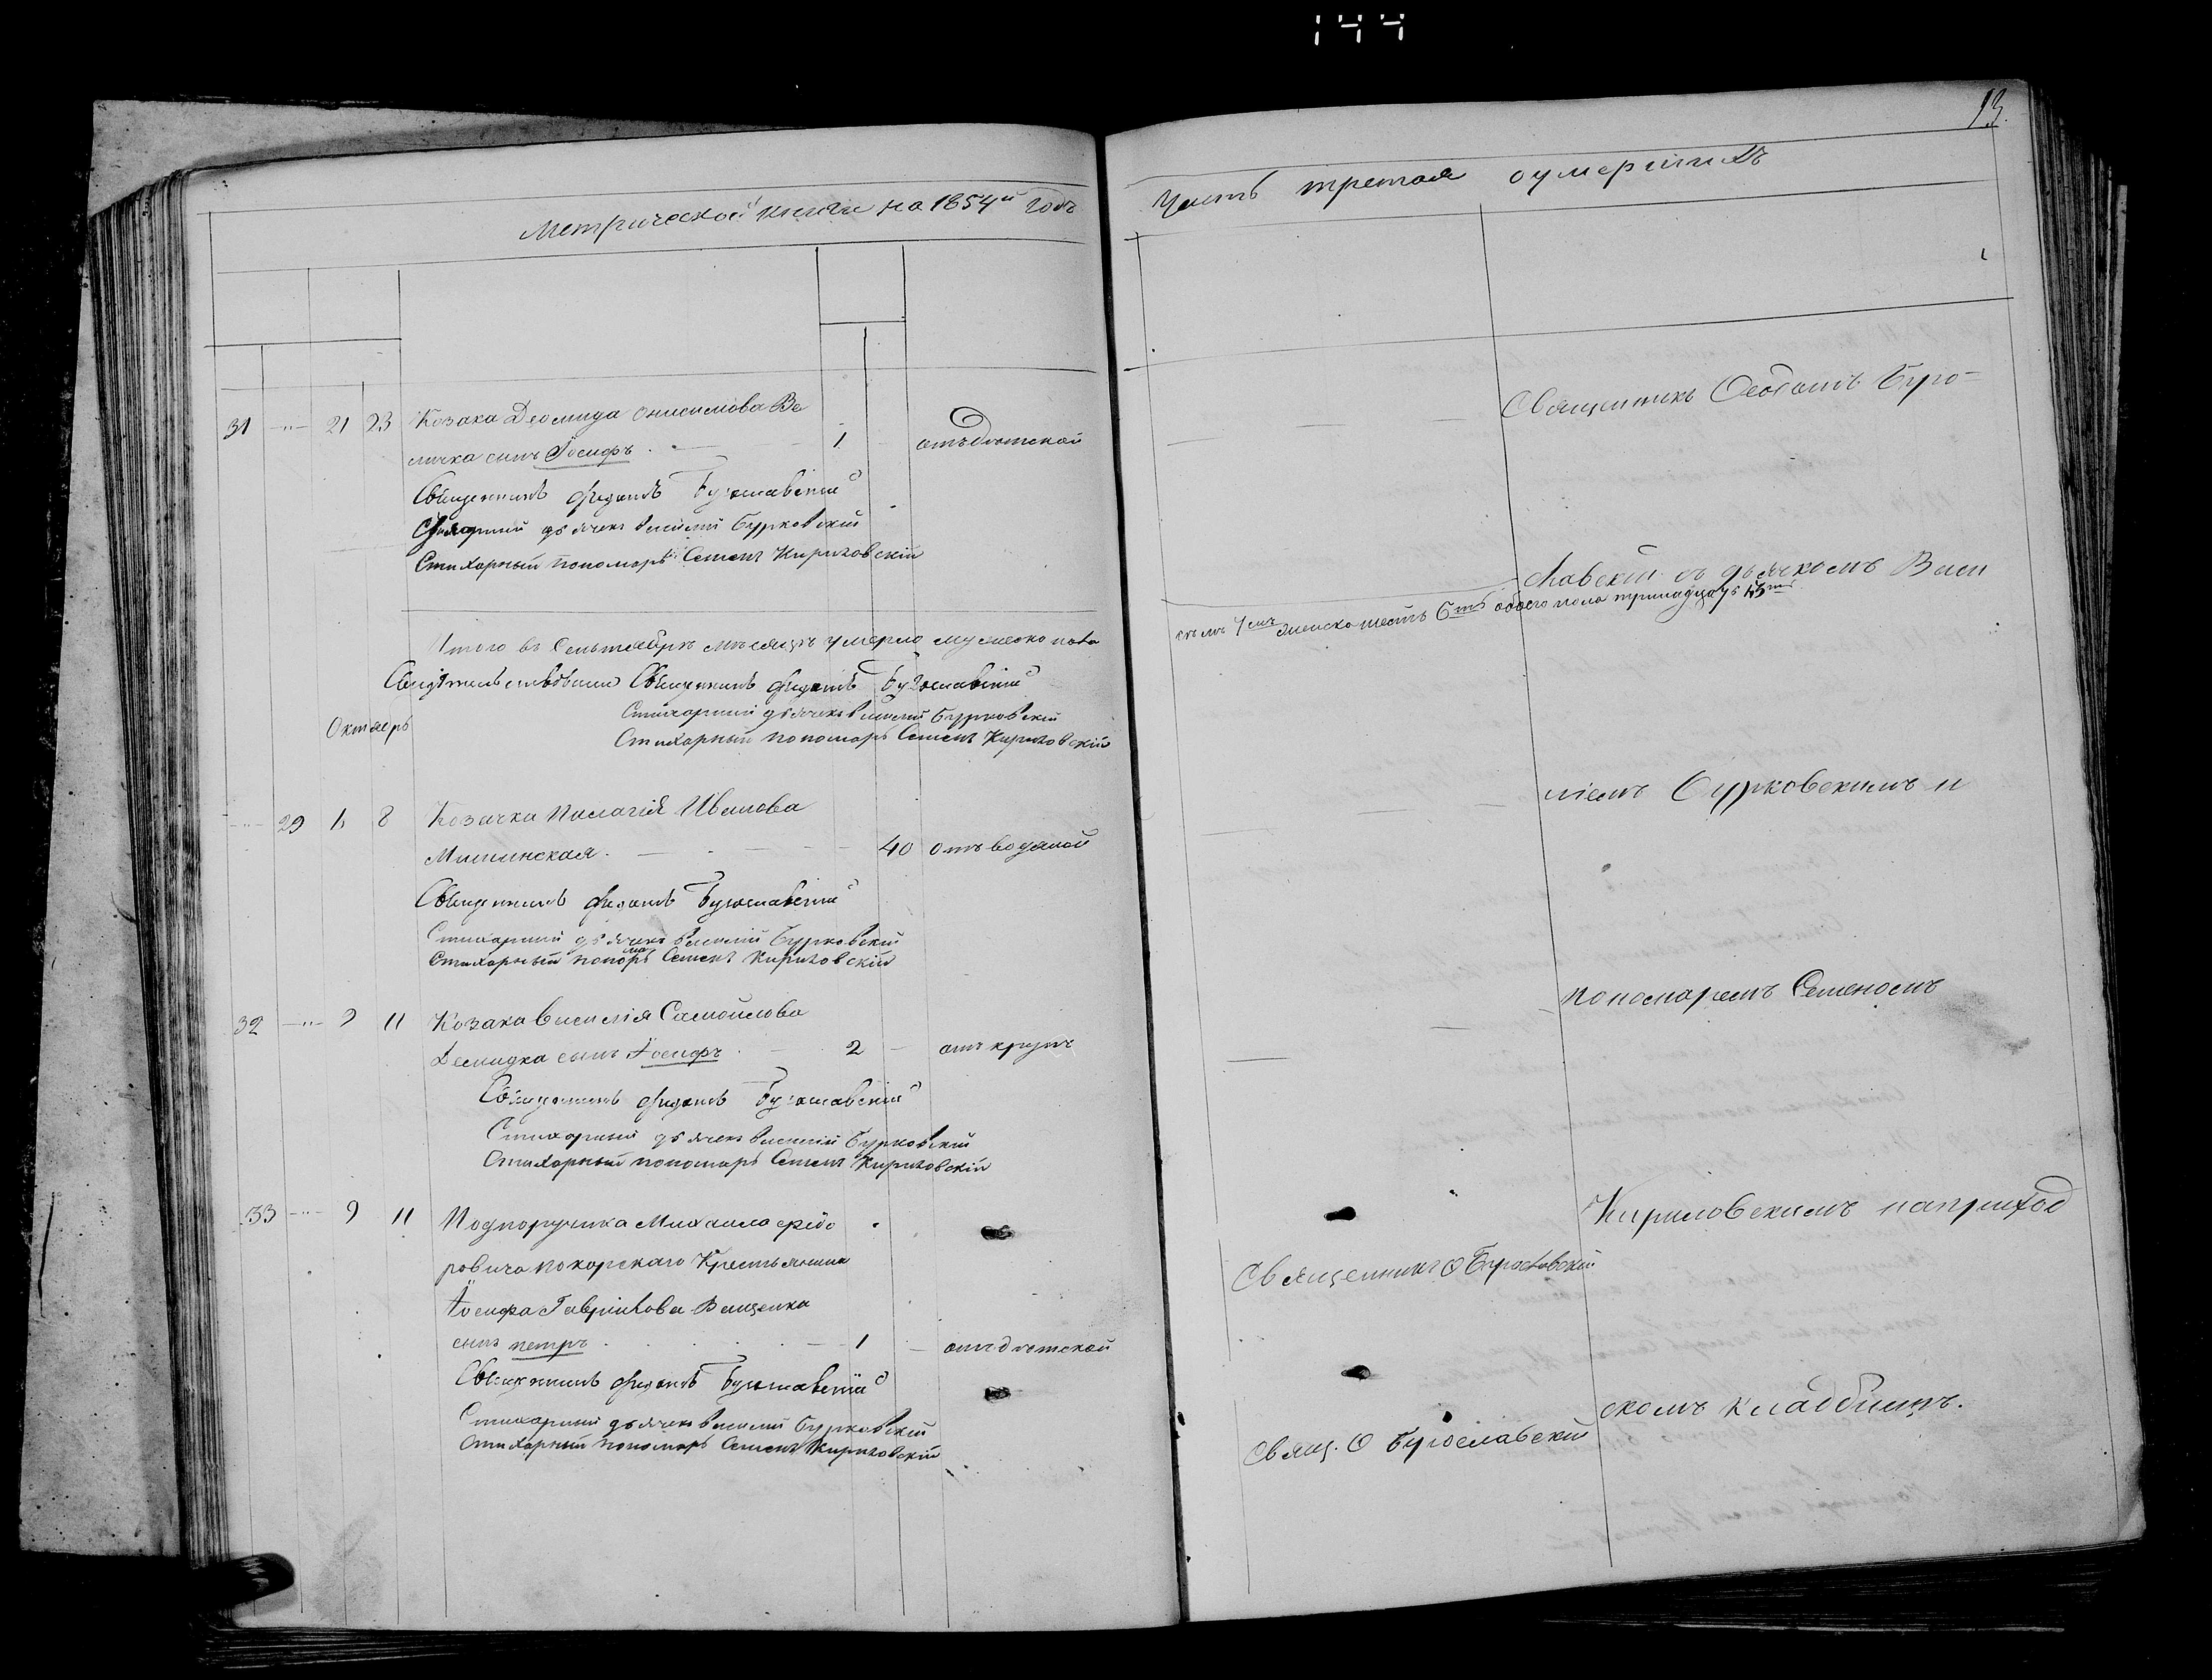 144
13.
Метрической книги на 1854й годъ
Часть третая о умершихъ
31 -"- 21 23 Козака Деомида Онисимова Ве
личка сынъ Іосифъ. 1 отъ дѣтской
Священникъ Федотъ Бугославскій
Стихарный дьячекъ Василій Бурковскій
Стихарный пономарь Семенъ Кириловскій
Итого въ Сентябрѣ мѣсяцѣ умерло мужеско пола
Свидѣтельствовали Священникъ Федотъ Бугославскій
Стихарный дьячекъ Василій Бурковскій
Стихарный пономарь Семенъ Кириловскій
Октябрь
-"- 29 8 Козачка Палагія Иванова
Мишинская. 40 отъ водяной
Священникъ Федотъ Бугославскій
Стихарный дьячекъ Василій Бурковскій
Стихарный пономарь Семенъ Кириловскій
32 -"- 9 11 Козака Василія Самойлова
Демидка сынъ Іосифъ 2 отъ
Священникъ Федотъ Бугославскій
Стихарный дьячекъ Василій Бурковскій
Стихарный пономарь Семенъ Кириловскій
33 -"- 9 11 Подпоручика Михаила Федо
ровича Покорскаго Крестьянина
Іосифа Гаврілова Ващенка
сынъ петръ 1 отъ дѣтской
Священникъ Федотъ Бугославскій
Стихарный дьячекъ Василій Бурковскій
Стихарный пономарь Семенъ Кириловскій
Священникъ Ѳеодотъ Буго-
славскій съ дьячкомъ Васи
7мъ женско шесть 6ть обоего пола тринадцать 13ть
ліемъ Бурковскимъ и
пономаремъ Семеномъ
Кириловскимъ наприход
Священникъ Ѳ Бугославскій
скомъ кладбищѣ.
Свящ. Ѳ Бугославскій